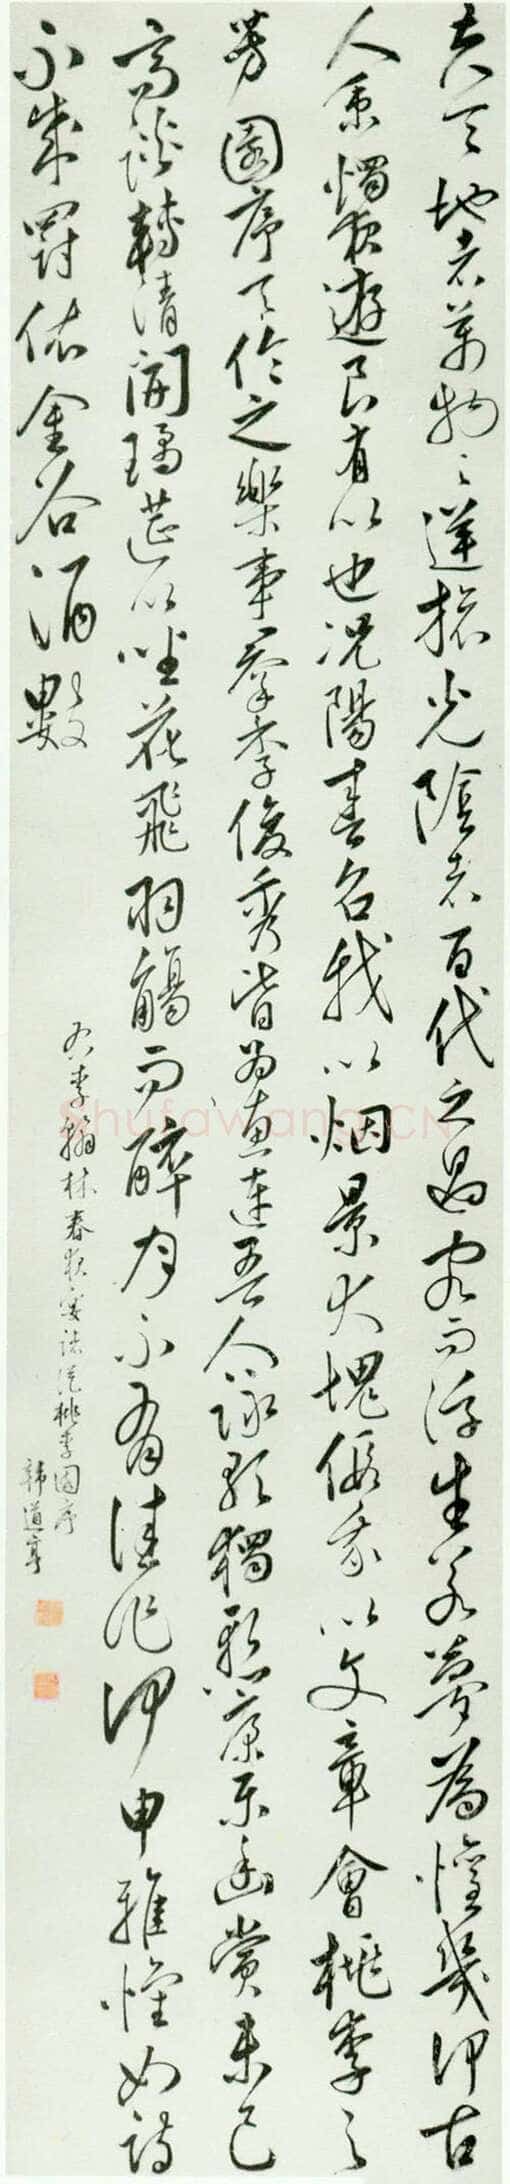 夫天地者萬物之逆旅光陰者百代之過客而浮生若夢為懽幾何古
人秉燭夜遊良有以也況陽春召我以烟景大塊假我以文章會桃李之
芳園序天倫之樂事羣季俊秀皆為惠連吾人詠歌獨慚康樂幽賞未已
高談轉清開瓊筵以坐花飛羽觴而醉月不有佳作何申雅懷如詩
不成罰依金谷酒數
右李翰林春夜宴諸從桃李園序
韓道亨
Shufawang.CN